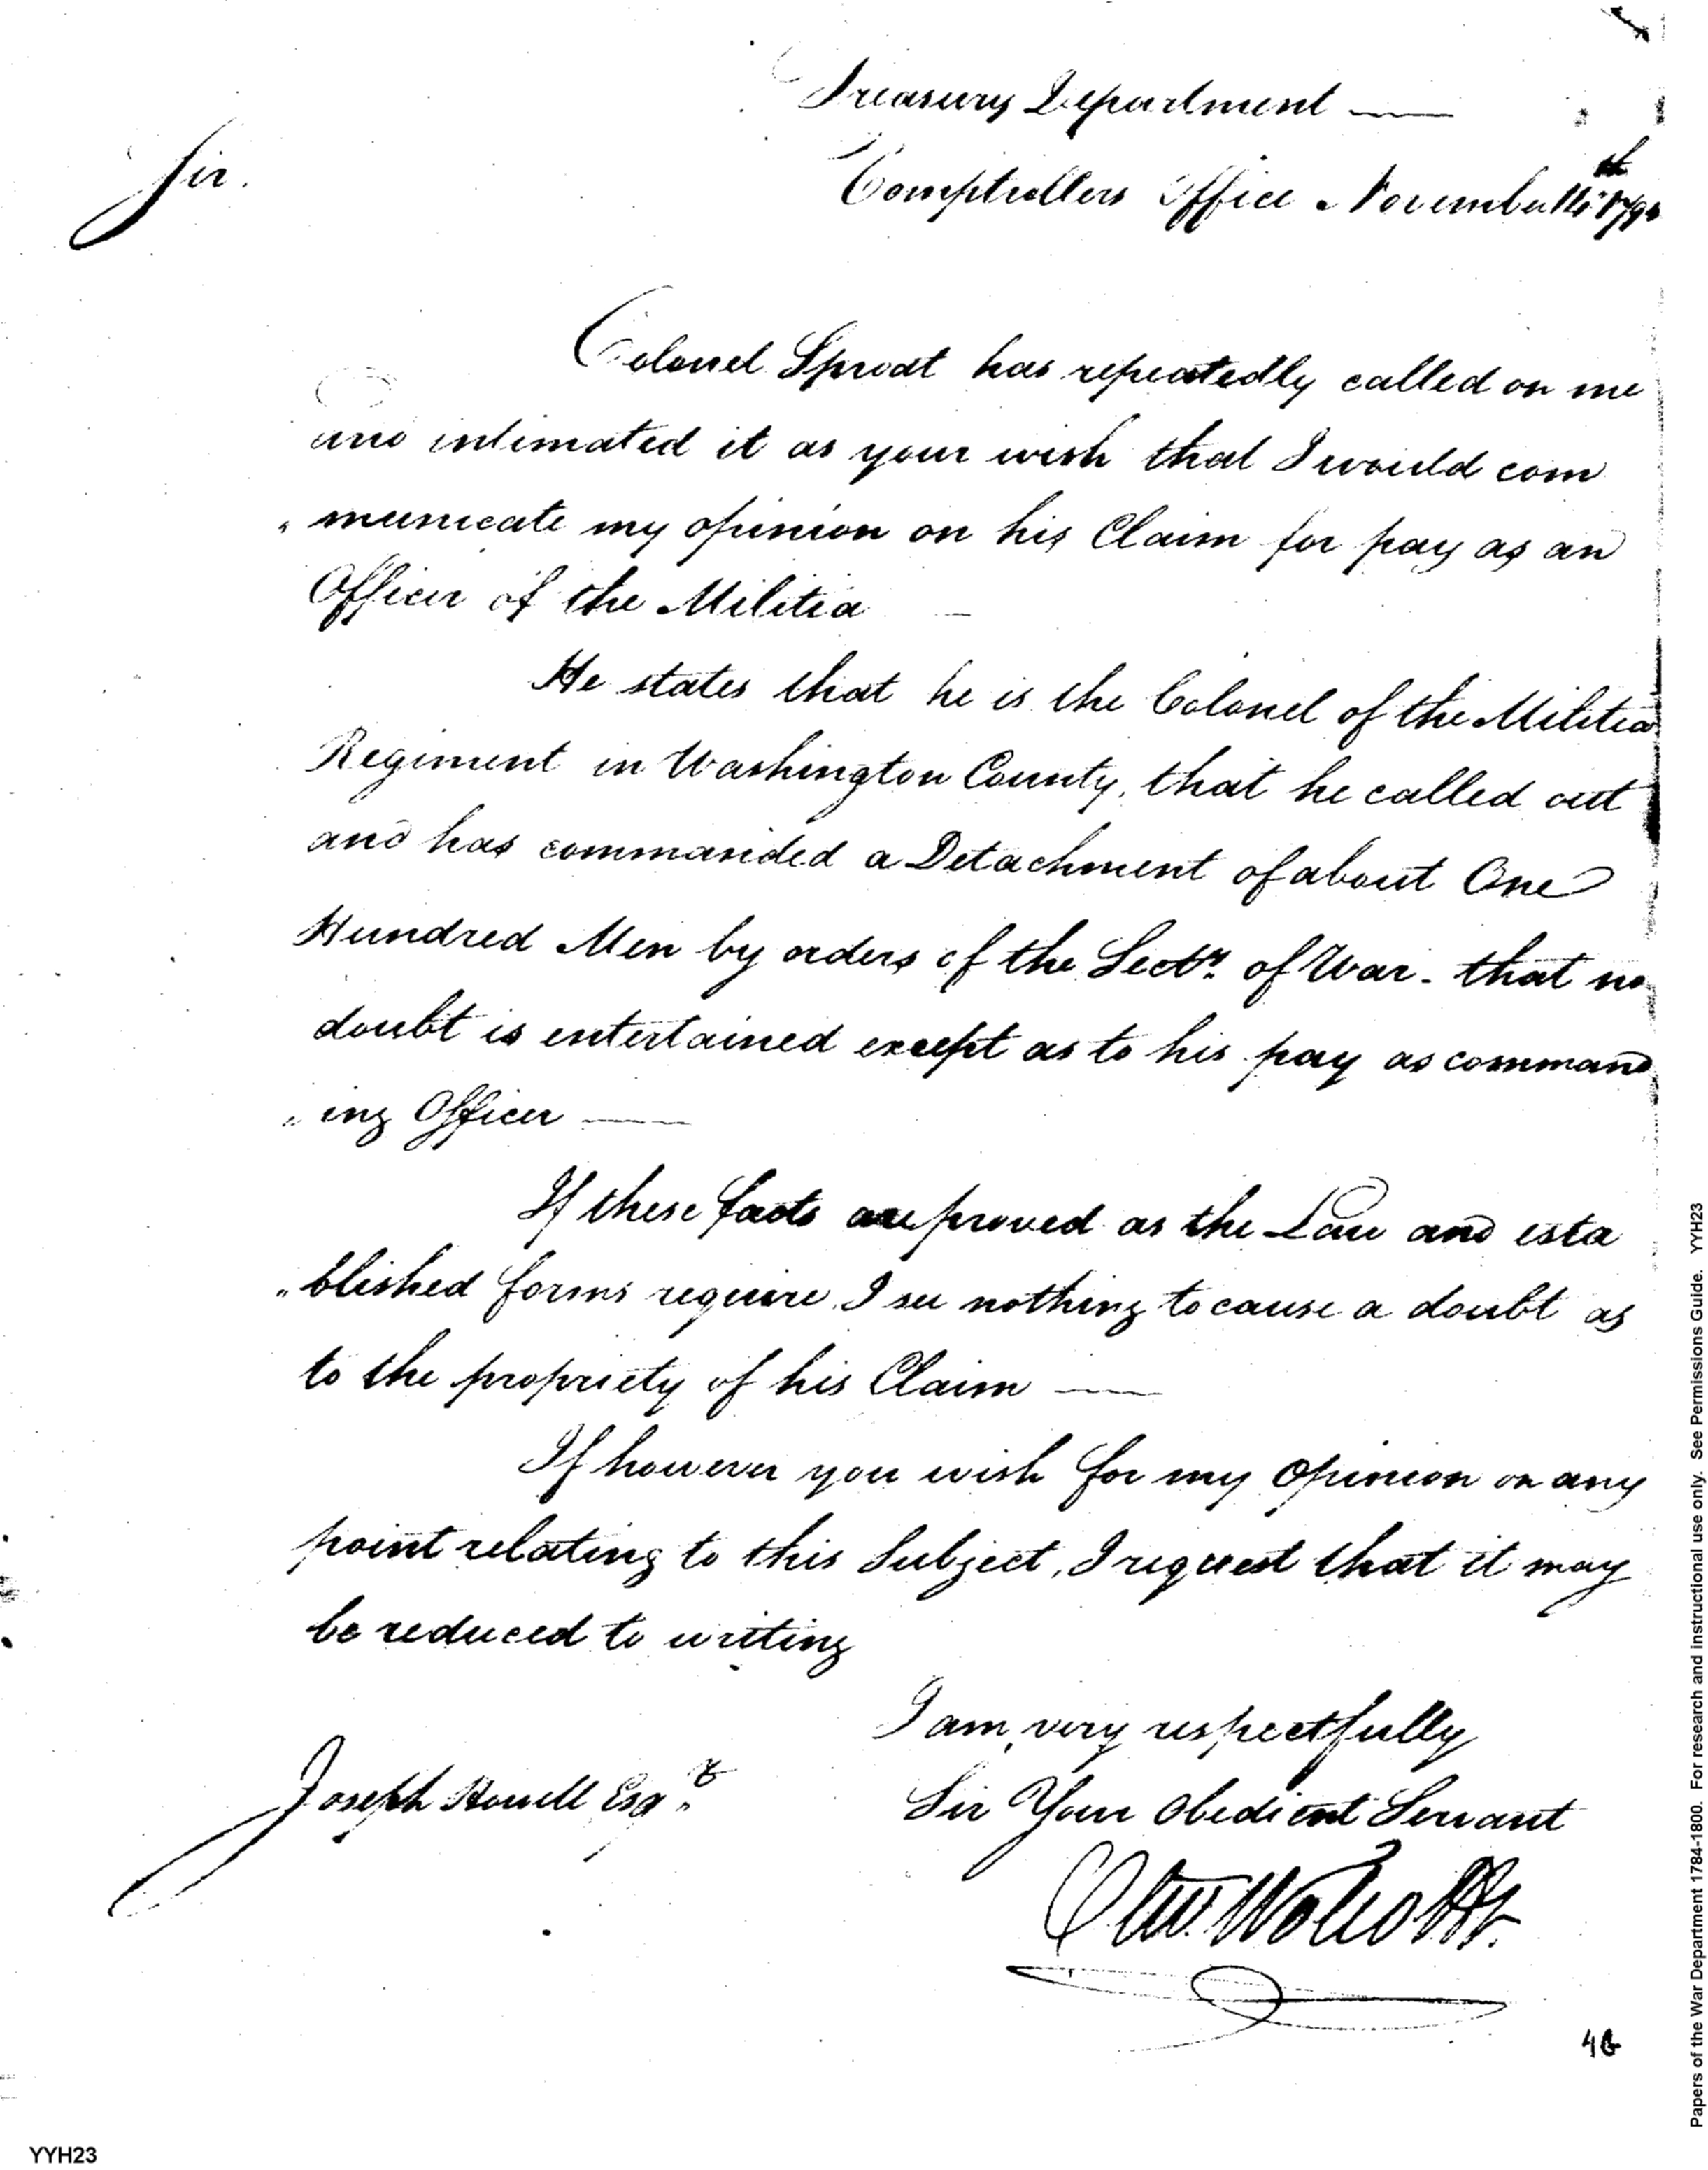 Treasury Department
Comptrollers Office November 14th
Sir.
Colonel Sproat has repeatedly called on me
and intimated it as your wish that I would com
"municate my opinion on his Claim for pay as an
Officer of the Militia
He states that he is the Colonel of the Militia
Regiment in Washington County, that he called out
and has commanded a Detachment of about One
Hundred Men by orders of the Secty. of War - that no
doubt is entertained except as to his pay as command
"ing Officer
If these facts are proved as the Law and esta
"blished forms require I see nothing to cause a doubt as
to the propriety of his Claim
If however you wish for my Opinion on any
point relating to this Subject, I request that it may
be reduced to writing
I am, very respectfully
Sir Your Obedient Servant
Oliv. Wolcott Jr.
Joseph Howell Esqr
YYH23
Papers of the War Department 1784-1800. For research and instructional use only. See Permissions Guide. YYH23